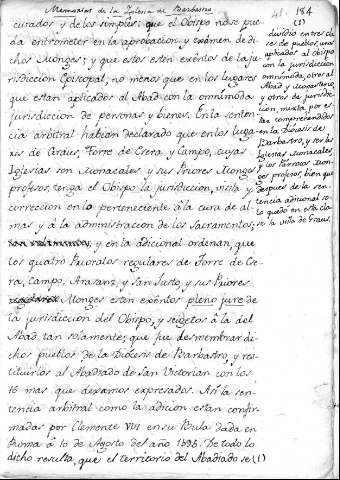 Memorias de la Iglesia de Barbastro
41. 184
curados y de los simples: que el Obispo no se pue-
da entrometer en la aprobacion y exâmen de di-
chos Monges; y que estos esten exêntos de la ju-
risdiccion Episcopal, no menos que en los lugares
que estan aplicados al Abad con la omnimoda
jurisdiccion de personas y bienes. En la senten-
cia arbitral habian declarado que en los luga-
res de Graus, Torre de Esera y Campo, cuyas
Iglesias son Monacales y sus Priores Monges
profesos, tenga el Obispo la jurisdiccion, visita y
correccion en lo perteneciente â la cura de al-
mas y â la administracion de los Sacramentos;
y en la adicional ordenan, que
los quatro Prioratos regulares de Torre de Ese-
ra, Campo, Arasanz, y San Justo, y sus Priores
Monges esten exêntos pleno jure de
la jurisdiccion del Obispo, y sugetos â la del
Abad tan solamente; que fue desmembrar di-
chos pueblos de la Diócesis de Barbastro, y res-
tituirlos al Abadiado de San Victorian con los
16 mas que dexamos expresados. Asi la sen-
tencia arbitral como la adicion estan confir-
madas por Clemente VIII en su Bula dada en
Roma â 10 de Agosto del año 1595. De todo lo
dicho resulta, que el territorio del Abadiado se (1)
(1)
dividió en tres cla-
ses de pueblos, unos
aplicados al obispo
con la jurisdiccion
omnimoda, otros al
Abad y Monasterio,
y otros de jurisdic-
cion mixta, por es-
tar comprehendidos
en la Diócesis de
Barbastro, y ser las
Iglesias Monacales,
y los Priores Mon-
ges profesos, bien que
despues de la sen-
tencia adicional so-
lo quedó en esta cla-
se la villa de Graus.